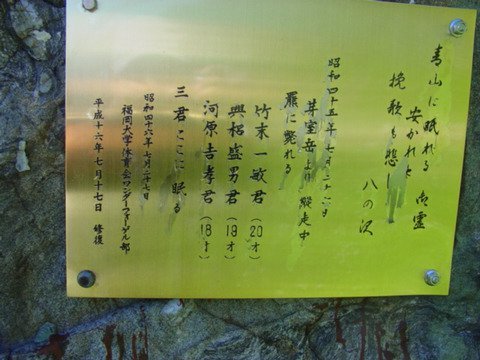 青山に眠れる御霊
安かれと
挽歌も悲し
八の沢
昭和四十五年七月二十六日
芽室岳より縦走中
羆に斃れる
竹末一敏君（20才）
興梠盛男君（19才）
河原吉孝君（18才）
三君ここに眠る
昭和四十六年七月二十七日
福岡大学体育会ワンダーフォーゲル部
平成十六年七月十七日 修復